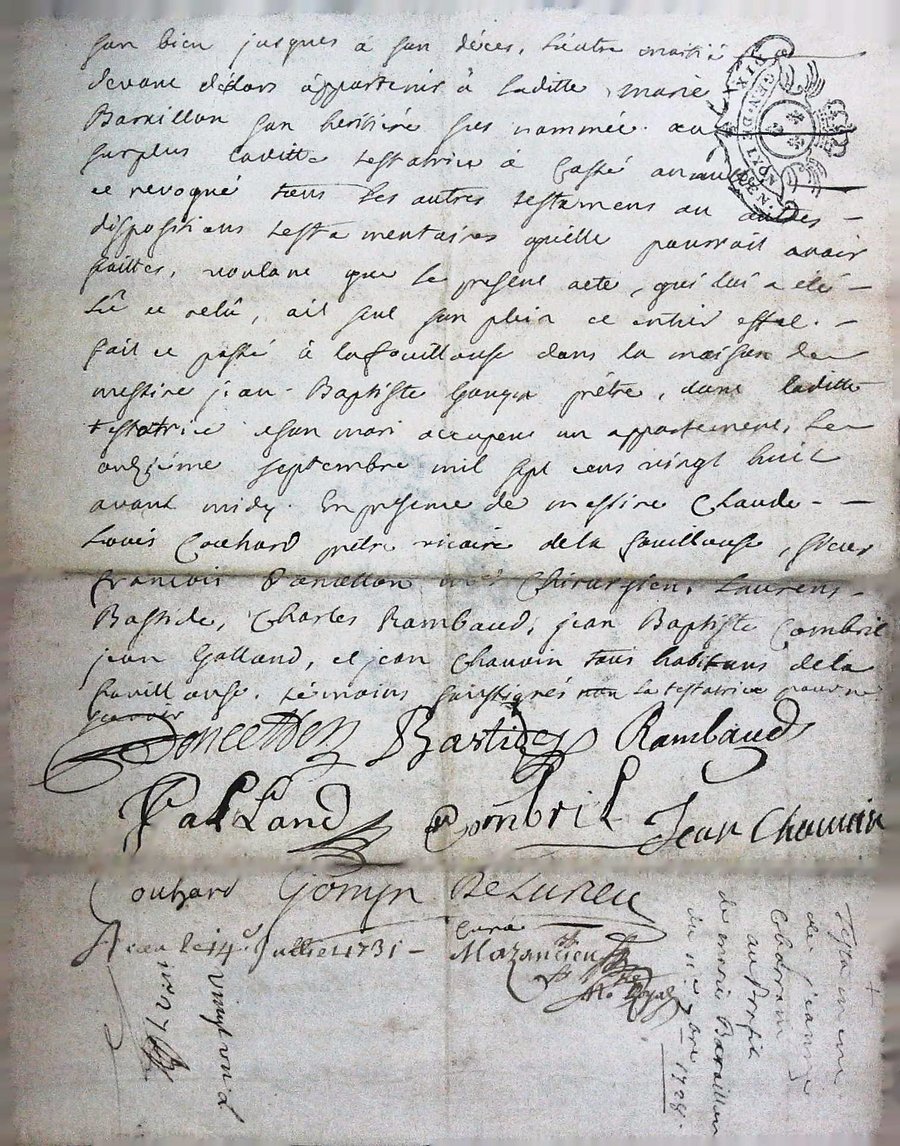 son bien jusques à son déces, l'autre moitié
devant déslors appartenir à laditte marie
Baraillon son heritiére sus nommée. au
surplus laditte testatrice à cassé annulé
et revoqué tous les autres testamens ou autres
dispositions testamentaires qu'elle pourroit avoir
faittes, voulant que le present acte, qui lui a été
Lû et relû, ait seul son plein et entier effet.
fait et passé à lafouillouse dans la maison de
messire jean-Baptiste Gonyn prêtre, dont laditte
testatrice et son mari occupent un appartement, Le
onziéme septembre mil sept cens vingt huit
avant midy. En presence de messire Claude
Louis Couhard prêtre vicaire de la fouillouse, sieur
francois Chirurgien, Laurens
Bastide, Charles Rambaud, jean Baptiste Combril
jean Galland, et jean Chauvin tous habitans de la
fouillouse. témoins soussignés non la testatrice pour ne
sçavoir
Bastide Rambaud
Galland Combril Jean Chauvin
Couhard Gonyn De Lurieu
curé
le 14e Juillet 1731 Mazancieu
Nre Royal
GEN. DE LYON
DIX DEN.
Testament
de jeanne
au Profit
de marie Baraillon
du 11e 7bre 1728